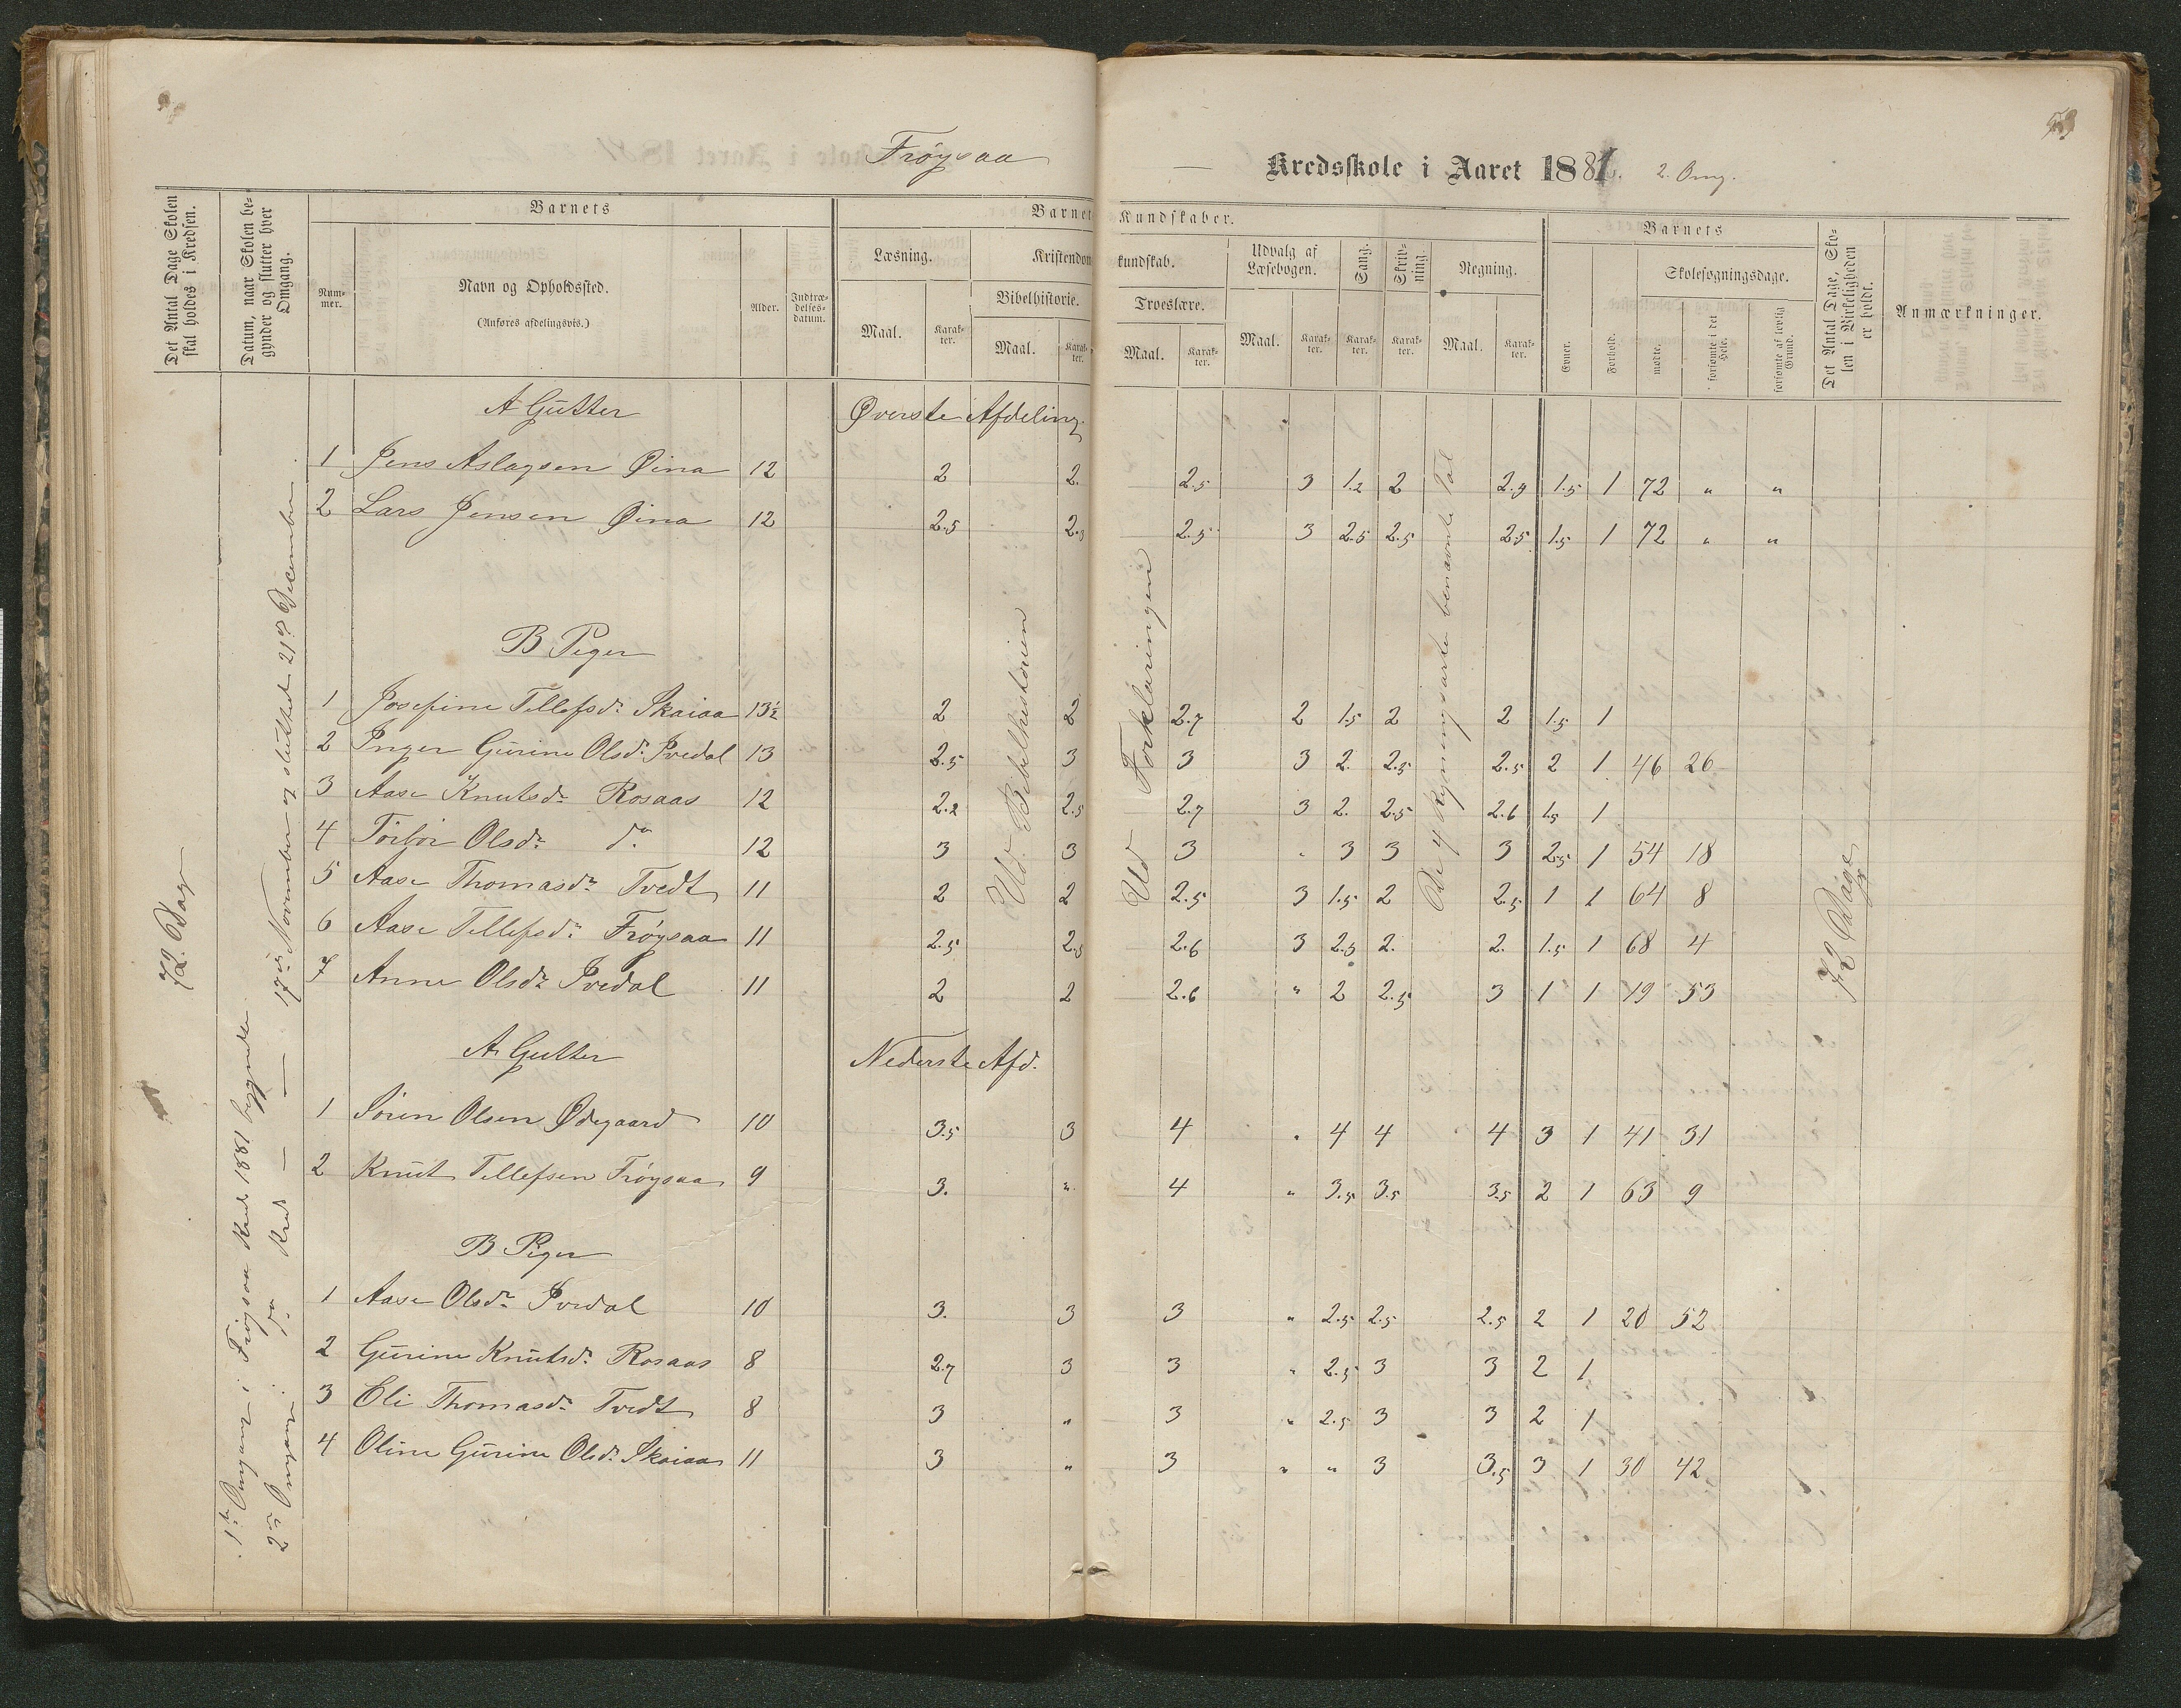 Frøysaa — Kredsskole i Aaret 1881. 2. Omg.
73
Det Antal Dage Skolen skal holdes i Kredsen.
Datum, naar Skolen begynder og slutter hver Omgang.
Barnets
Nummer.
Navn og Opholdssted.
(Anføres afdelingsvis.)
Alder.
Indtrædelsesdatum.
Barnets Kundskaber.
Læsning.
Maal.
Karakter.
Kristendomskundskab.
Bibelhistorie.
Maal.
Karakter.
Troeslære.
Maal.
Karakter.
Udvalg af Læsebogen.
Maal.
Karakter.
Sang.
Karakter.
Skrivning.
Karakter.
Regning.
Maal.
Karakter.
Barnets
Evner.
Forhold.
Skolesøgningsdage.
mødte.
forsømte i det Hele.
forsømte af lovlig Grund.
Det Antal Dage, Skolen i Virkeligheden er holdt.
Anmærkninger.
72. Dage
1ste Omgang i Frøysaa Kreds 1881 begyndte
2den Omgang i do Kreds — — 17de November og sluttet 21de December
Ud. Bibelhistorien
Ud Forklaringen
De 4 Regningsarte benævnte Tal
72 Dage
A Gutter Øverste Afdeling
1 Jens Aslagsen Øina 12 2 2. 2.5 3 1.2 2 2.5 1.5 1 72 " "
2 Lars Jensen Øina 12 2.5 2.5 2.5 3 2.5 2.5 2.5 1.5 1 72 " "
B Piger
1 Josefine Tellefsdr. Skaiaa 13½ 2 2 2.7 2 1.5 2 2 1.5 1
2 Inger Gurine Olsdr. Ivedal 13 2.5 3 3 3 2. 2.5 2.5 2 1 46 26
3 Aase Knutsdr. Rosaas 12 2.2 2.5 2.7 3 2. 2.5 2.6 1.5 1
4 Torbor Olsdr. do. 12 3 3 3 " 3 3 3 2.5 1 54 18
5 Aase Thomasdr. Tvedt 11 2 2 2.5 3 1.5 2 2.5 1 1 64 8
6 Aase Tellefsdr. Frøysaa 11 2.5 2.5 2.6 3 2.5 2. 2. 1.5 1 68 4
7 Anne Olsdr. Ivedal 11 2 2 2.6 " 2 2.5 3 1 1 19 53
A. Gutter Nederste Afd.
1 Søren Olsen Ødegaard 10 3.5 3 4 " 4 4 4 3 1 41 31
2 Knut Tellefsen Frøysaa 9 3. " 4 " 3.5 3.5 3.5 2 1 63 9
B Piger
1 Aase Olsdr. Ivedal 10 3. 3 3 " 2.5 2.5 2.5 2 1 20 52
2 Gurine Knutsdr. Rosaas 8 2.7 3 3 " 2.5 3 3 2 1
3 Eli Thomasdr. Tvedt 8 3 " 3 " 2.5 3 3 2 1
4 Oline Gurine Olsdr. Skaiaa 11 3 " 3 " " 3 3.5 3 1 30 42